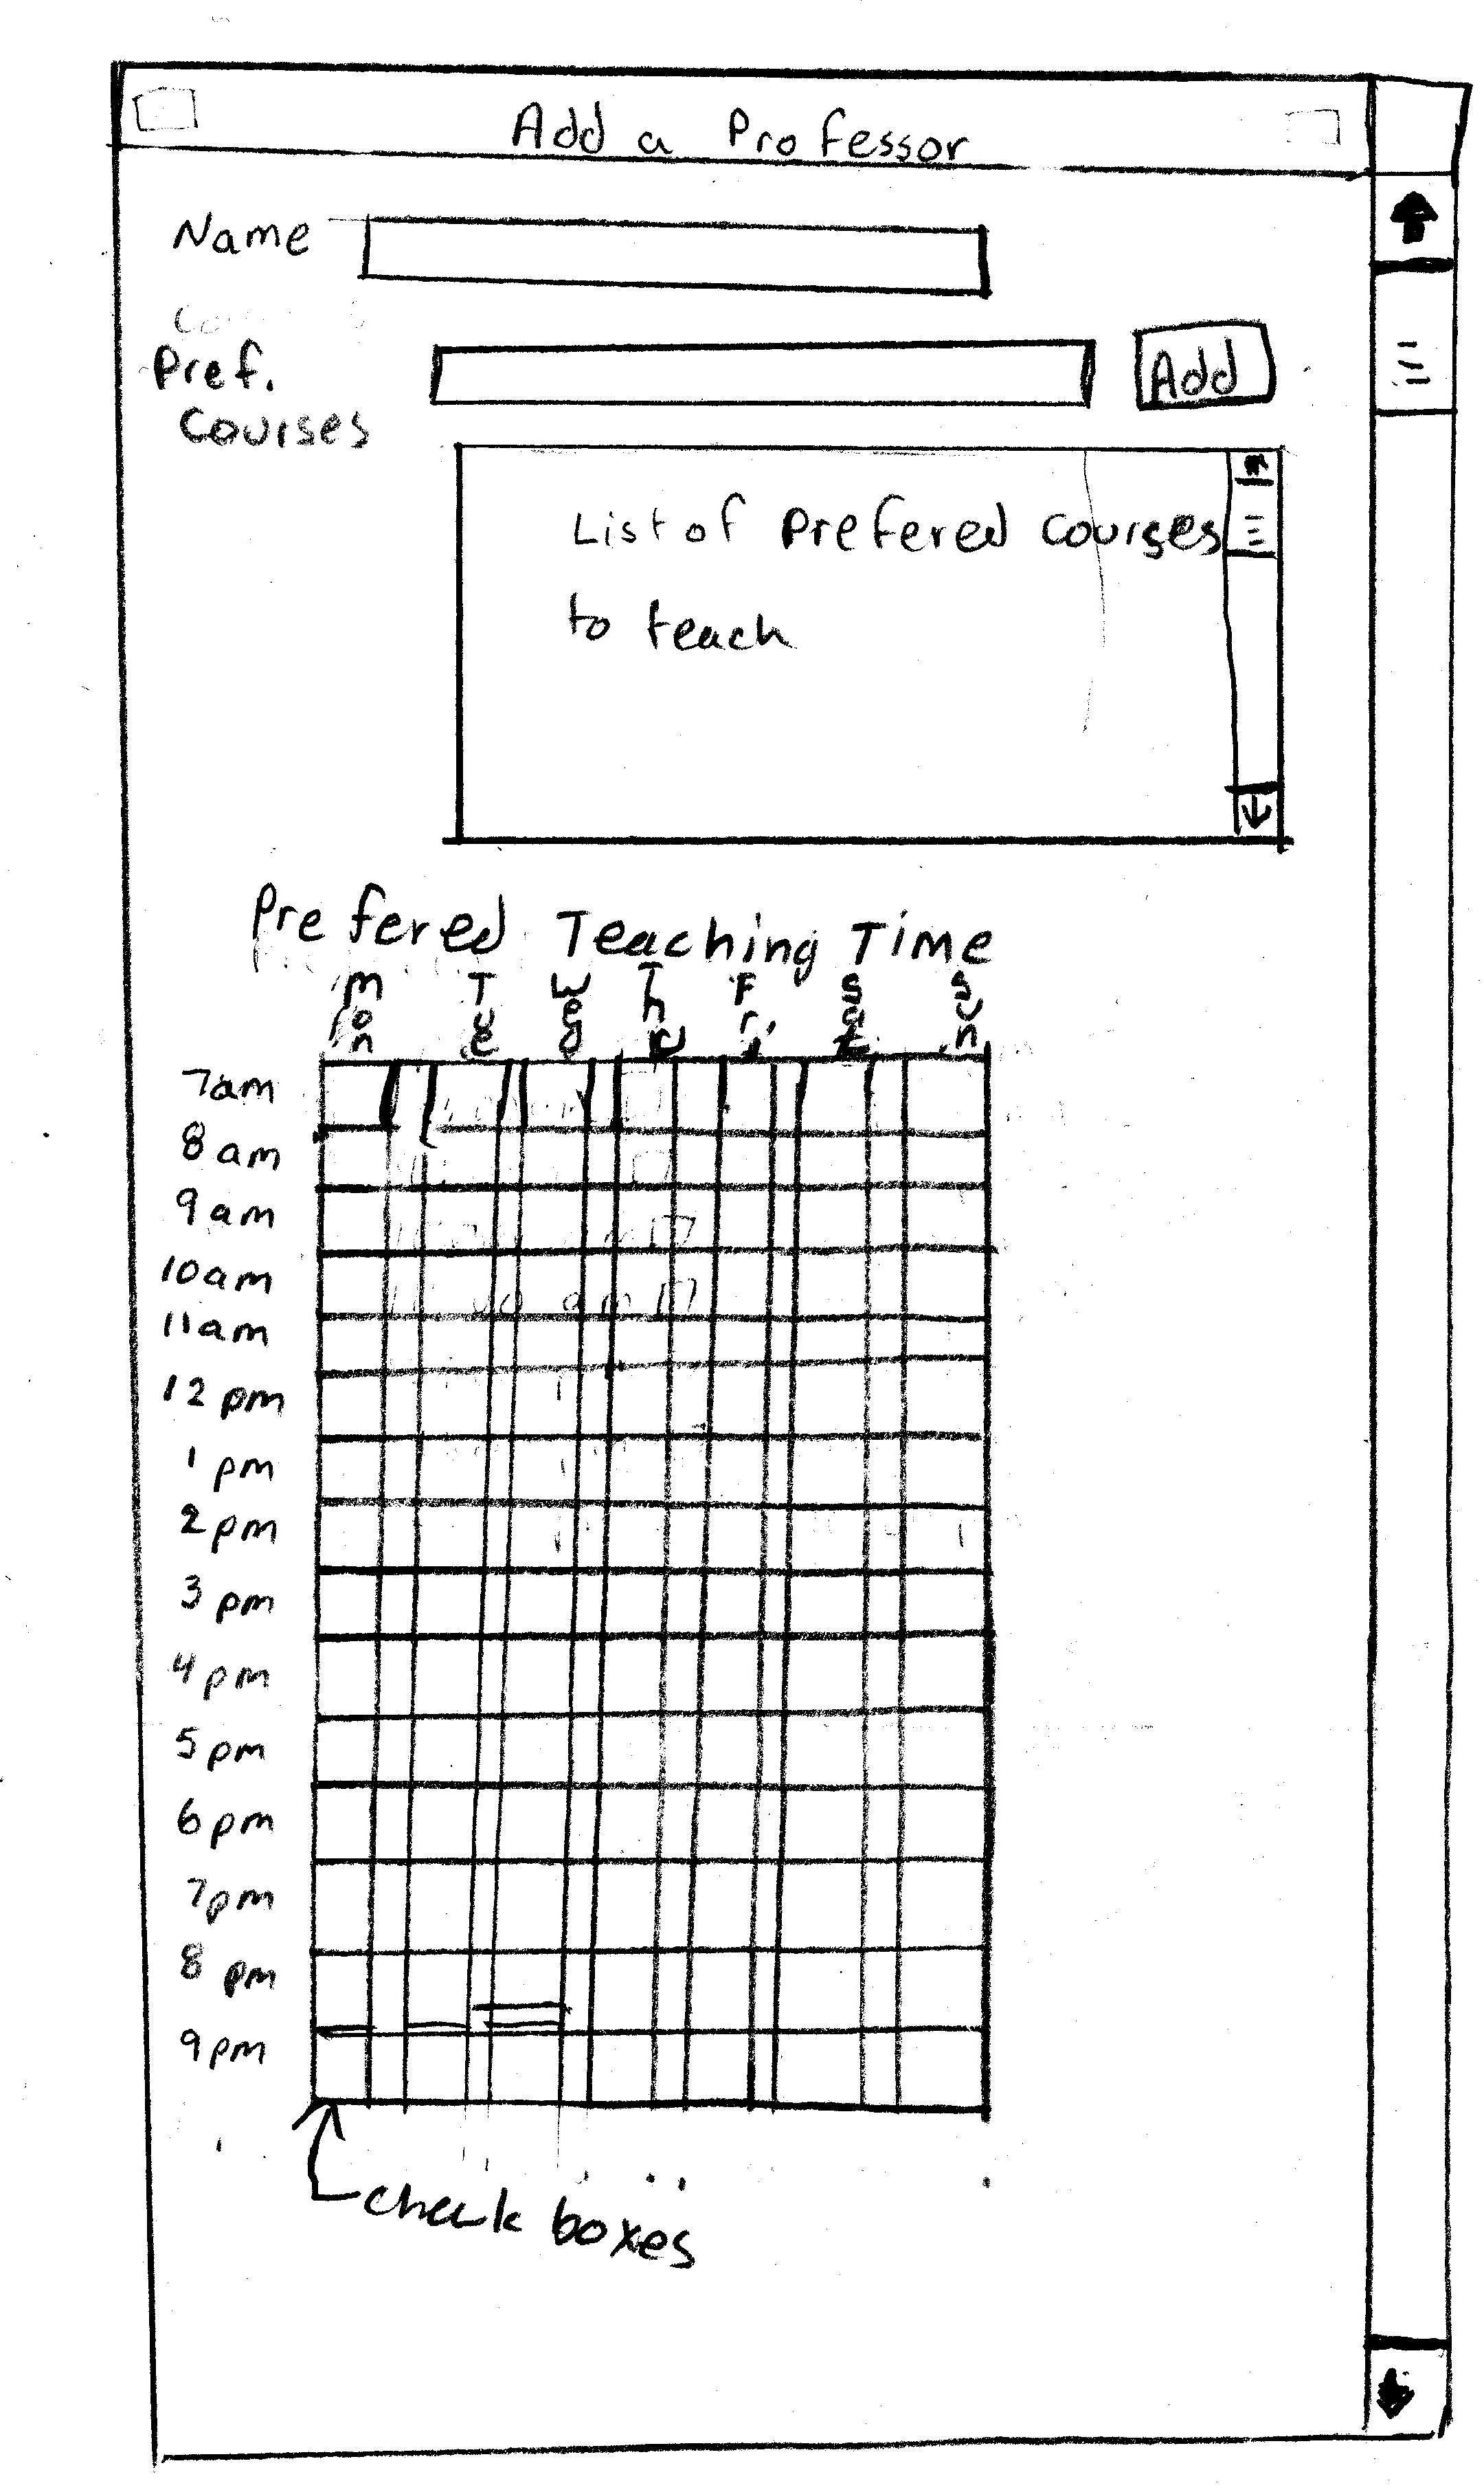 Add a Professor
Name
Pref.
Courses
Add
List of Prefered Courses
to teach
Prefered Teaching Time
Mon Tue Wed Thu Fri Sat Sun
7am
8 am
9 am
10am
11am
12 pm
1 pm
2 pm
3 pm
4 pm
5 pm
6 pm
7pm
8 pm
9 pm
check boxes